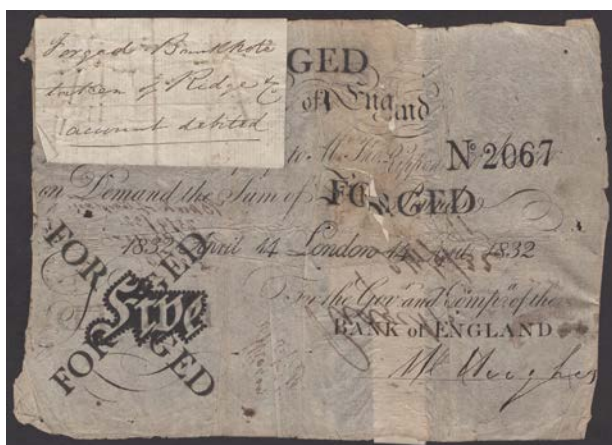 Forged Bank Note
taken of Ridge & C
account debited
GED
of England
to M. Tho Rippon No 2067
on Demand the Sum of Pounds
FORGED
1832 April 14 London 14 April 1832
FORGED
Five
FORGED
For the Govr and Compa of the
BANK of ENGLAND